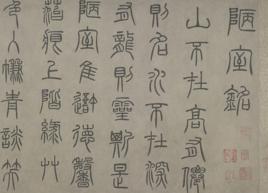 陋室銘
山不在高有僊
則名水不在深
有龍則靈斯是
陋室隹吾德馨
苔痕上階綠艸
色入簾青談笑